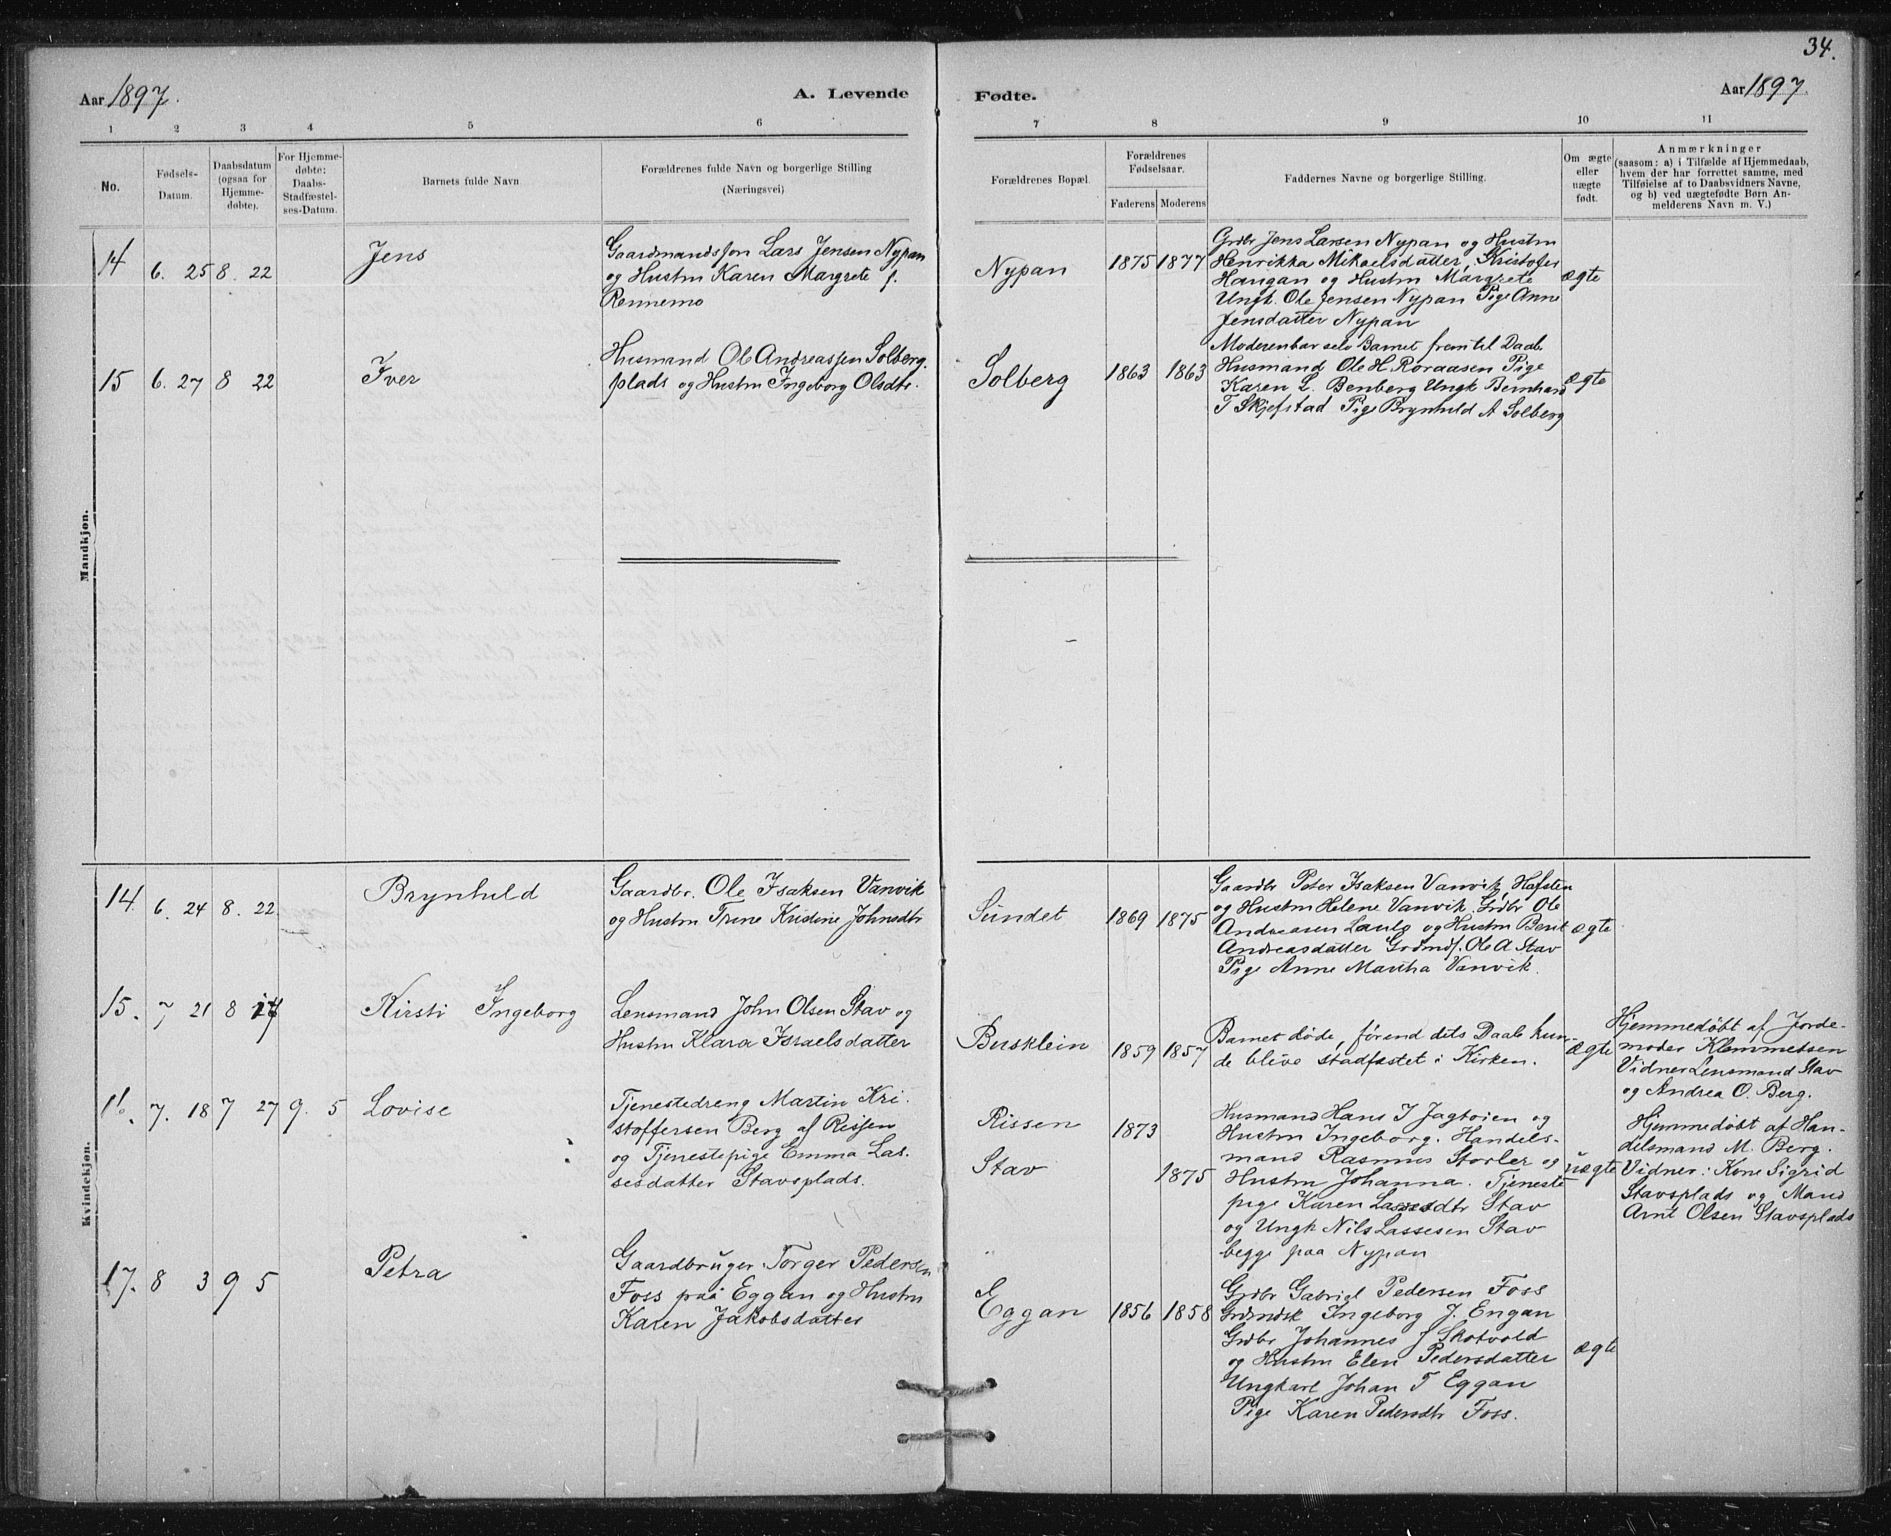 34.
Aar 1897.
A. Levende
Fødte.
Aar 1897.
1 2 3 4 5 6 7 8 9 10 11
No.
Fødsels-
Datum.
Daabsdatum
(ogsaa for
Hjemme-
døbte).
For Hjemme-
døbte:
Daabs-
Stadfæstel-
ses-Datum.
Barnets fulde Navn
Forældrenes fulde Navn og borgerlige Stilling
(Næringsvei)
Forældrenes Bopæl.
Forældrenes
Fødselsaar.
Faderens Moderens
Faddernes Navne og borgerlige Stilling.
Om ægte
eller
uægte
født.
Anmærkninger
(saasom: a) i Tilfælde af Hjemmedaab,
hvem der har forrettet samme, med
Tilføielse af to Daabsvidners Navne,
og b) ved uægtefødte Børn An-
melderens Navn m. V.)
Mandkjøn.
14 6. 25 8. 22 Jens
Gaardmandssøn Lars Jensen Nypan
og Hustru Karen Margrete f.
Rennemo
Nypan 1875 1877
Grdbr Jens Larsen Nypan og Hustru
Henrikka Mikaelsdatter, Kristofer
Haugan og Hustru Margrete
Ungk. Ole Jensen Nypan Pige Anne
Jensdatter Nypan
ægte
15 6. 27 8 22 Iver
Husmand Ole Andreassen Solberg
plads og Hustru Ingeborg Olsdtr.
Solberg 1863 1863
Moderen bar selv Barnet frem til Daab
Husmand Ole H. Røraasen Pige
Karen L. Benberg Ungk Bernhard
T Skjefstad Pige Brynhild A Solberg
ægte
Kvindekjøn.
14. 6. 24 8. 22. Brynhild
Gaardbr. Ole Isaksen Vanvik
og Hustru Trine Kristine Johnsdtr
Sundet 1869 1875
Gaardbr Peter Isaksen Vanvik, Hafsten
og Hustru Helene Vanvik. Grdbr Ole
Andreasen Laulo og Hustru Berit
Andreasdatter Grdmds. Ole A Stav
Pige Anne Martha Vanvik.
ægte
15. 7 21 8 17 Kirsti Ingeborg
Lensmand John Olsen Stav og
Hustru Klara Israelsdatter
Busklein 1859 1857
Barnet døde, førend dets Daab kun-
de blive stadfæstet i Kirken.
ægte
Hjemmedøbt af Jorde-
moder Klemmetsen
Vidner Lensmand Stav
og Andrea O. Berg.
16. 7. 18 7 27 9. 5 Lovise
Tjenestedreng Martin Kri-
stoffersen Berg af Rissen
og Tjenestepige Emma Las-
sesdatter Stavsplads.
Rissen 1873
Stav 1875
Husmand Hans J Jagtøien og
Hustru Ingeborg. Handels-
mand Rasmus Storler og
Hustru Johanna. Tjeneste
pige Karen Lassesdtr Stav
og Ungk Nils Lassesen Stav
begge paa Nypan
uægte
Hjemmedøbt af Han-
delsmand M. Berg.
Vidner: Kone Sigrid
Stavsplads og Mand
Arnt Olsen Stavsplads
17. 8 3 9 5 Petra
Gaardbruger Torger Pedersen
Foss paa Eggan og Hustru
Karen Jakobsdatter
Eggan 1856 1858
Grdbr Gabriel Pedersen Foss
Grdmdsk Ingeborg J. Engan
Grdbr Johannes J Skotvold
og Hustru Elen Pedersdatter
Ungkarl Johan T Eggan
Pige Karen Pedersdtr Foss.
ægte